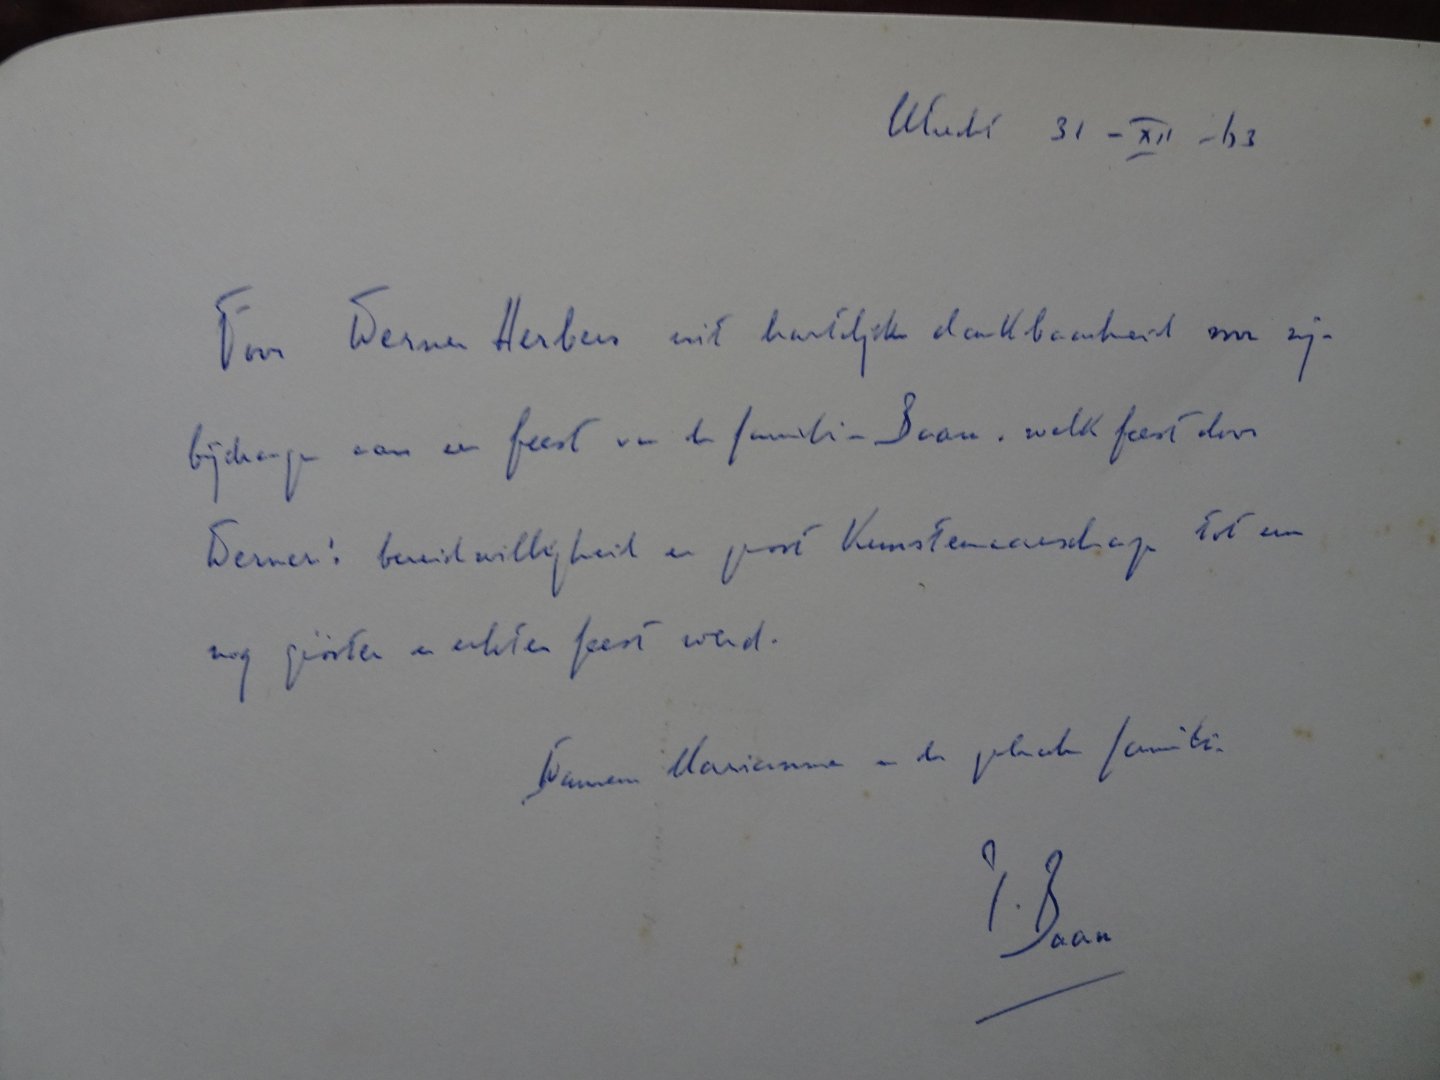 Utrecht 31-XII-63
Voor Werner Herbers uit hartelijke dankbaarheid voor zijn
bijdrage aan een feest van de familie Baan. welk feest door
Werner's bereidwilligheid en groot Kunstenaarschap tot een
nog groter en echter feest werd.
Namens Marianne en de gehele familie
J. Baan